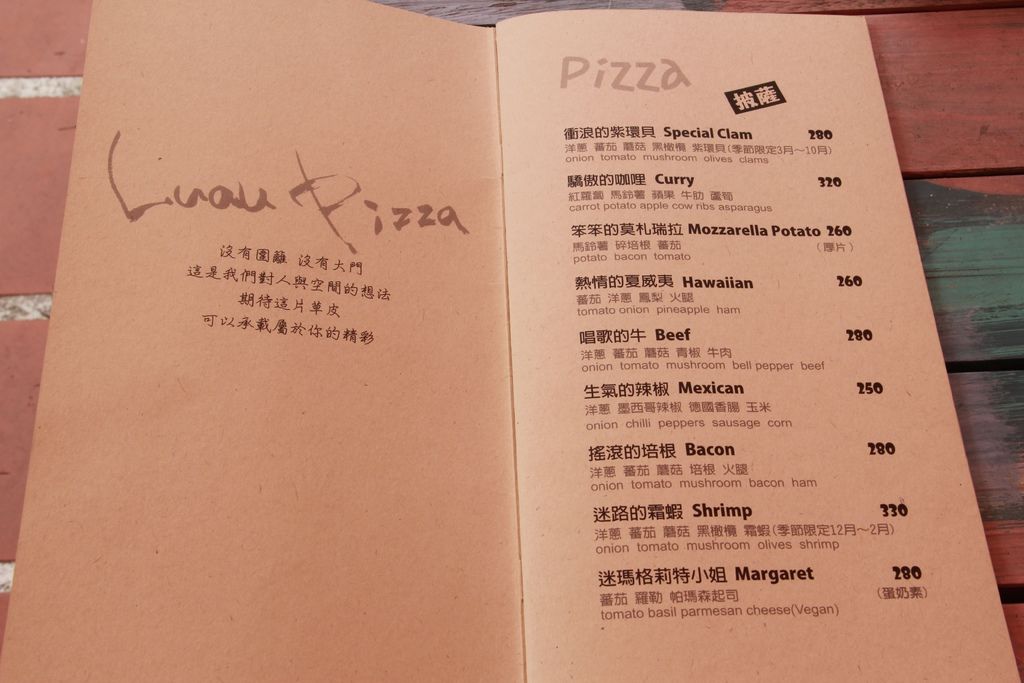 Luau Pizza
沒有圍籬 沒有大門
這是我們對人與空間的想法
期待這片草皮
可以承載屬於你的精彩
Pizza
披薩
衝浪的紫環貝 Special Clam 280
洋蔥 蕃茄 蘑菇 黑橄欖 紫環貝(季節限定3月～10月)
onion tomato mushroom olives clams
驕傲的咖哩 Curry 320
紅蘿蔔 馬鈴薯 蘋果 牛肋 蘆筍
carrot potato apple cow ribs asparagus
笨笨的莫札瑞拉 Mozzarella Potato 260
馬鈴薯 碎培根 蕃茄 (厚片)
potato bacon tomato
熱情的夏威夷 Hawaiian 260
蕃茄 洋蔥 鳳梨 火腿
tomato onion pineapple ham
唱歌的牛 Beef 280
洋蔥 蕃茄 蘑菇 青椒 牛肉
onion tomato mushroom bell pepper beef
生氣的辣椒 Mexican 250
洋蔥 墨西哥辣椒 德國香腸 玉米
onion chilli peppers sausage corn
搖滾的培根 Bacon 280
洋蔥 蕃茄 蘑菇 培根 火腿
onion tomato mushroom bacon ham
迷路的霜蝦 Shrimp 330
洋蔥 蕃茄 蘑菇 黑橄欖 霜蝦(季節限定12月～2月)
onion tomato mushroom olives shrimp
迷瑪格莉特小姐 Margaret 280
蕃茄 羅勒 帕瑪森起司 (蛋奶素)
tomato basil parmesan cheese(Vegan)